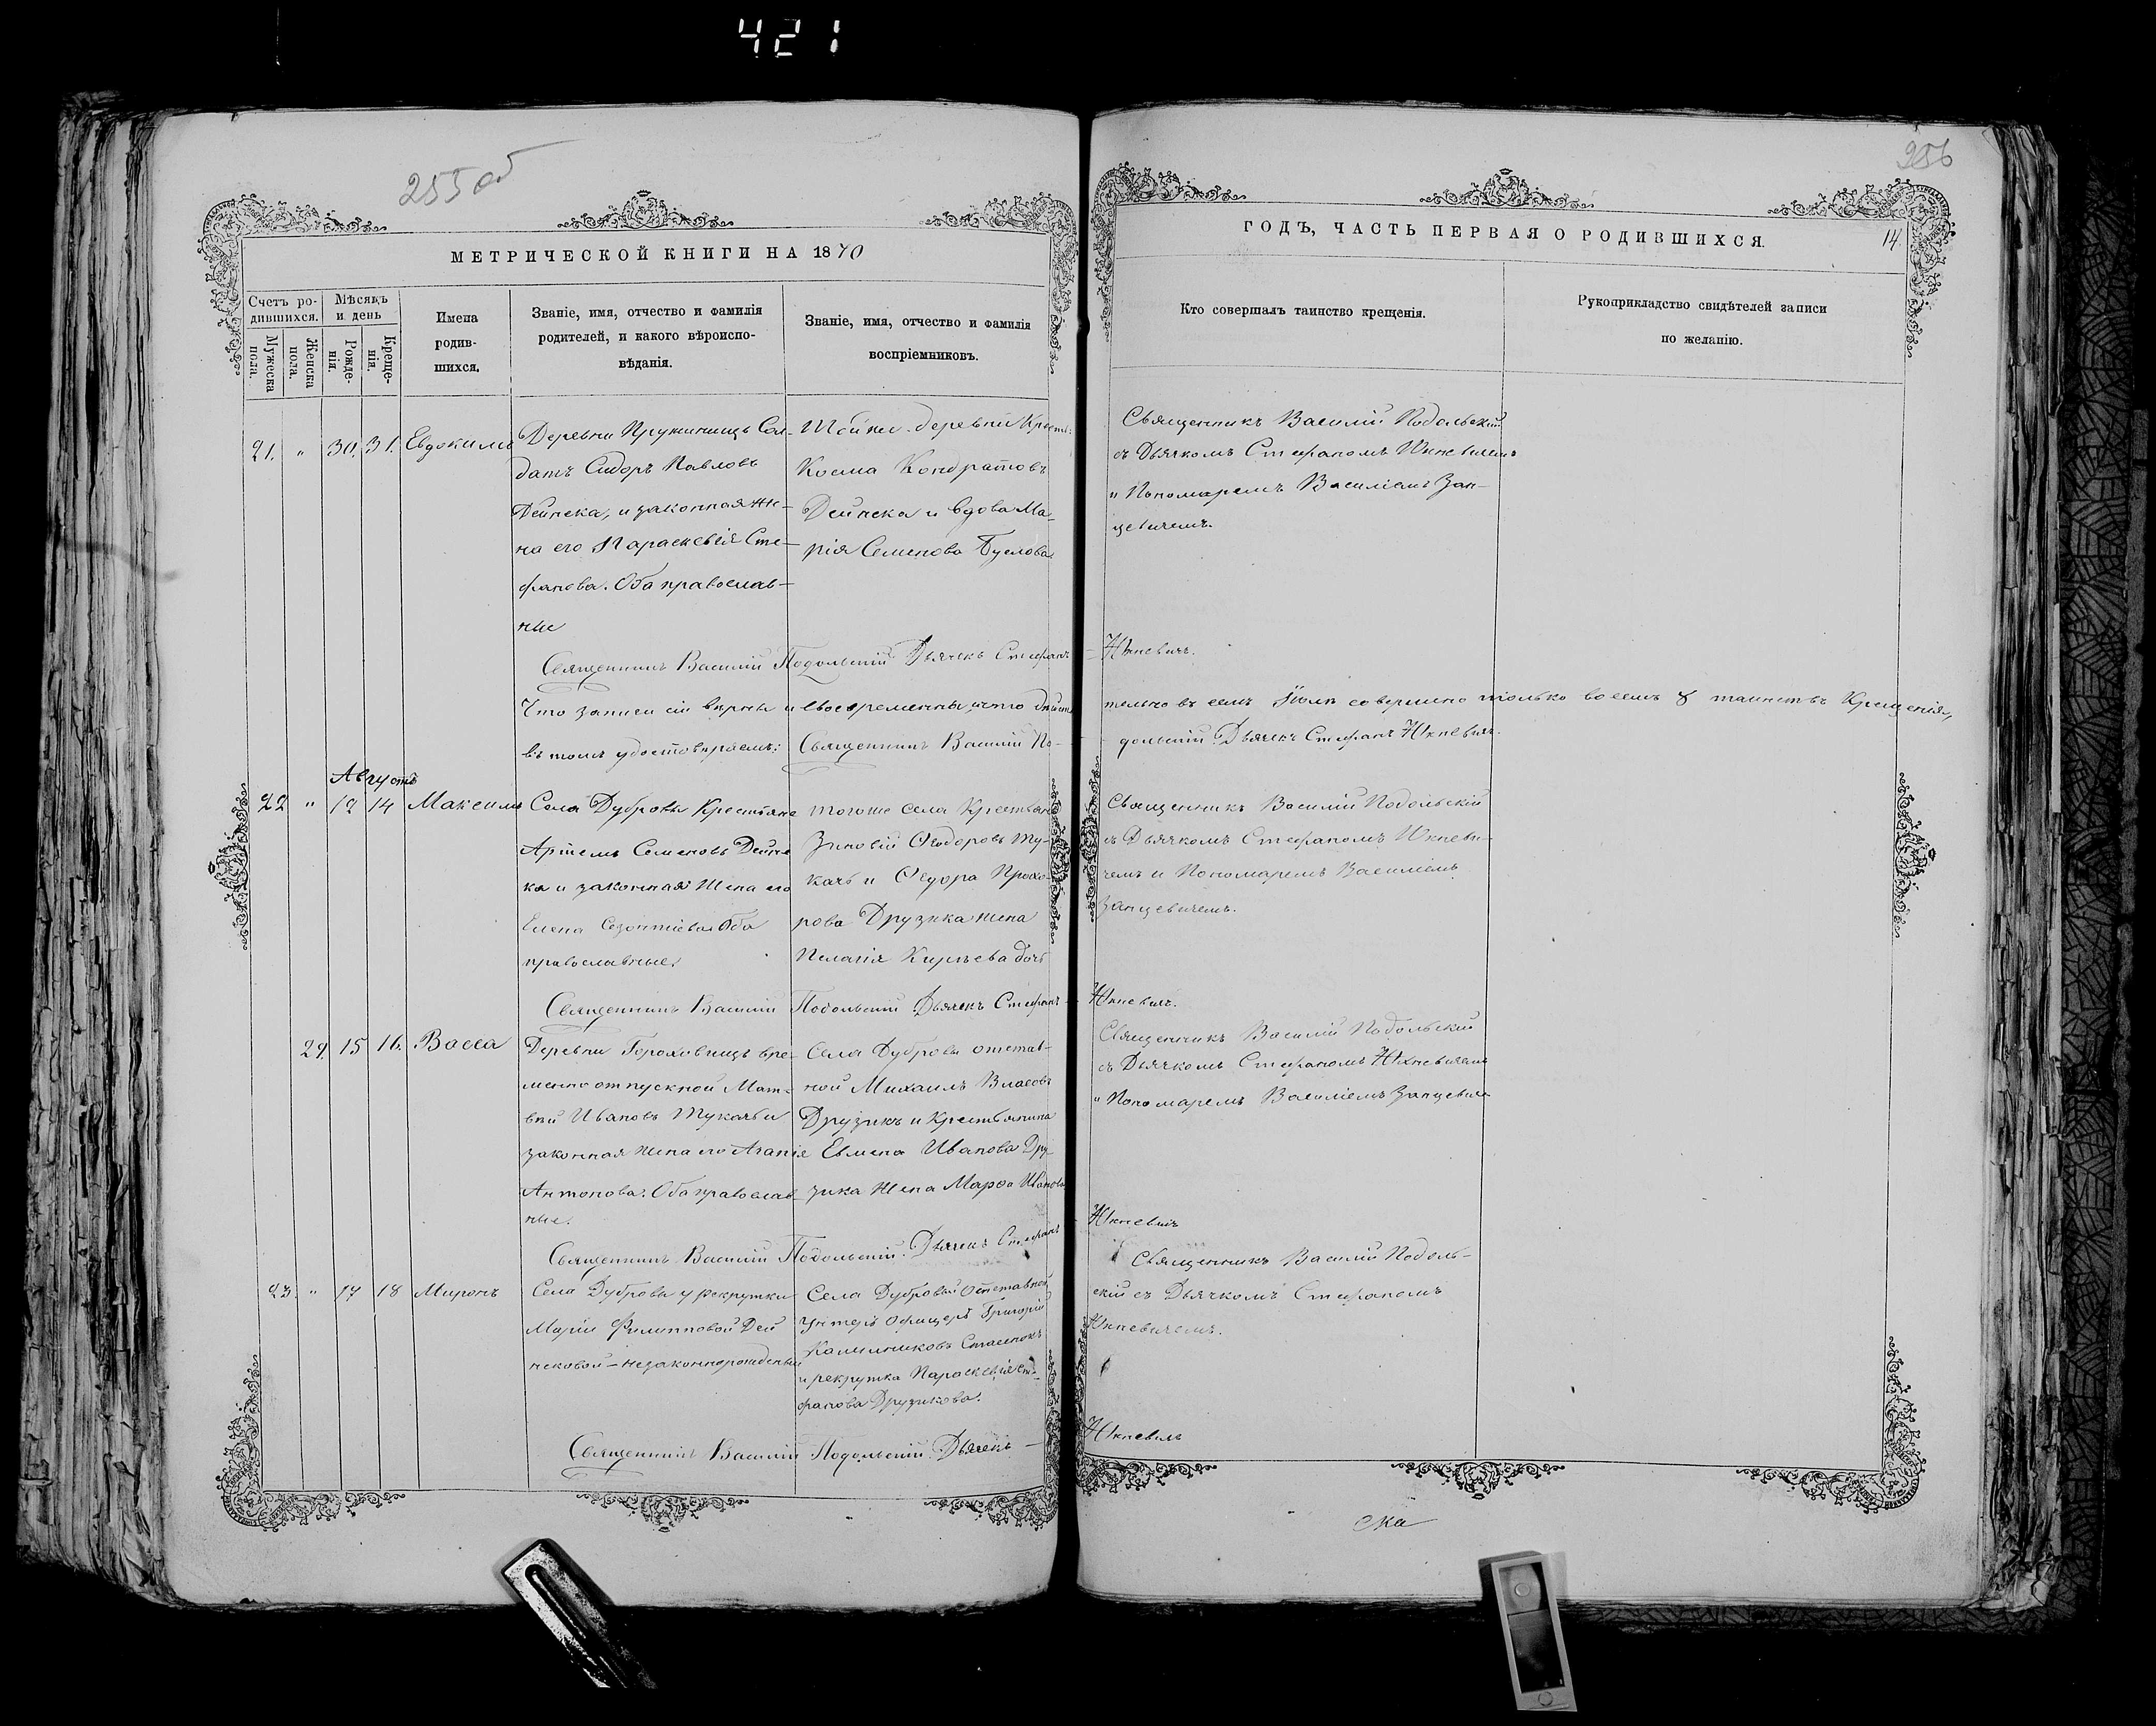 421
255 об
256
МЕТРИЧЕСКОЙ КНИГИ НА 1870
Счетъ ро-
дившихся.
Мужеска
пола.
Женска
пола.
Мѣсяцъ
и день
Рожде-
нія.
Креще-
нія.
Имена
родив-
шихся.
Званіе, имя, отчество и фамилія
родителей, и какого вѣроиспо-
вѣданія.
Званіе, имя, отчество и фамилія
воспріемниковъ.
21. " 30. 31. Евдокимъ
Деревни Пружинищъ Сол-
датъ Сидоръ Павловъ
Дейнека, и законная же-
на его Параскевія Сте-
фанова. Оба православ-
ные
Той же деревни Крест:
Косма Кондратовъ
Дейнека и вдова Ма-
рія Семенова Буслова
Священникъ Василій Подольскій Дьячекъ Стефанъ
Что записи сіи вѣрны и своевременны, и что дѣйстви
въ томъ удостовѣряемъ: Священникъ Василій По-
Августъ
22 " 12 14 Максимъ
Села Дубровы Крестьяне
Артемъ Семеновъ Дейне
ка и законная жена его
Елена Оба
православные.
тогоже села Крестьян
Зиновій Ѳеодоровъ Ту-
качъ и Ѳедора Прохо-
рова Друзика жена
Пелагія дочь
Священникъ Василій Подольскій Дьячекъ Стефанъ
29. 15 16. Васса
Деревни Гороховищъ вре-
менно отпускной Мат-
вѣй Ивановъ Тукачъ и
законная жена его Агапія
Антонова. Оба православ-
ные.
Села Дубровы отстав-
ной Михаилъ Власовъ
Друзикъ и Крестьянина
Евмена Иванова Дру-
зика жена Марѳа Иванова
Священникъ Василій Подольскій. Дьячекъ Стефанъ
23. " 17 18 Миронъ
Села Дубровы у рекрутки
Маріи Филипповой Дей
нековой - незаконнорожденный
Села Дубровой Отставной
Унтеръ Офицеръ Григорій
и рекрутка Параскевія Сте-
фанова Друзикова.
Священникъ Василій Подольскій. Дьячекъ
ГОДЪ, ЧАСТЬ ПЕРВАЯ О РОДИВШИХСЯ.
14.
Кто совершалъ таинство крещенія.
Рукоприкладство свидѣтелей записи
по желанію.
Священникъ Василій Подольскій
съ Дьячкомъ Стефаномъ Юхневичемъ
и Пономаремъ Василіемъ Зан-
цевичемъ.
Юхневичъ.
тельно въ семъ Іюлѣ совершено только восемь 8 таинствъ Крещенія,
дольскій Дьячекъ Стефанъ Юхневичъ.
Священникъ Василій Подольскій
съ Дьячкомъ Стефаномъ Юхневи-
чемъ и Пономаремъ Василіемъ
Занцевичемъ.
Юхневичъ.
Священникъ Василій Подольскій
съ Дьячкомъ Стефаномъ Юхневичемъ
и Пономаремъ Василіемъ Занцевиче
Юхневичъ
Священникъ Василій Подоль-
скій съ Дьячкомъ Стефаномъ
Юхневичемъ.
Юхневичъ
ска